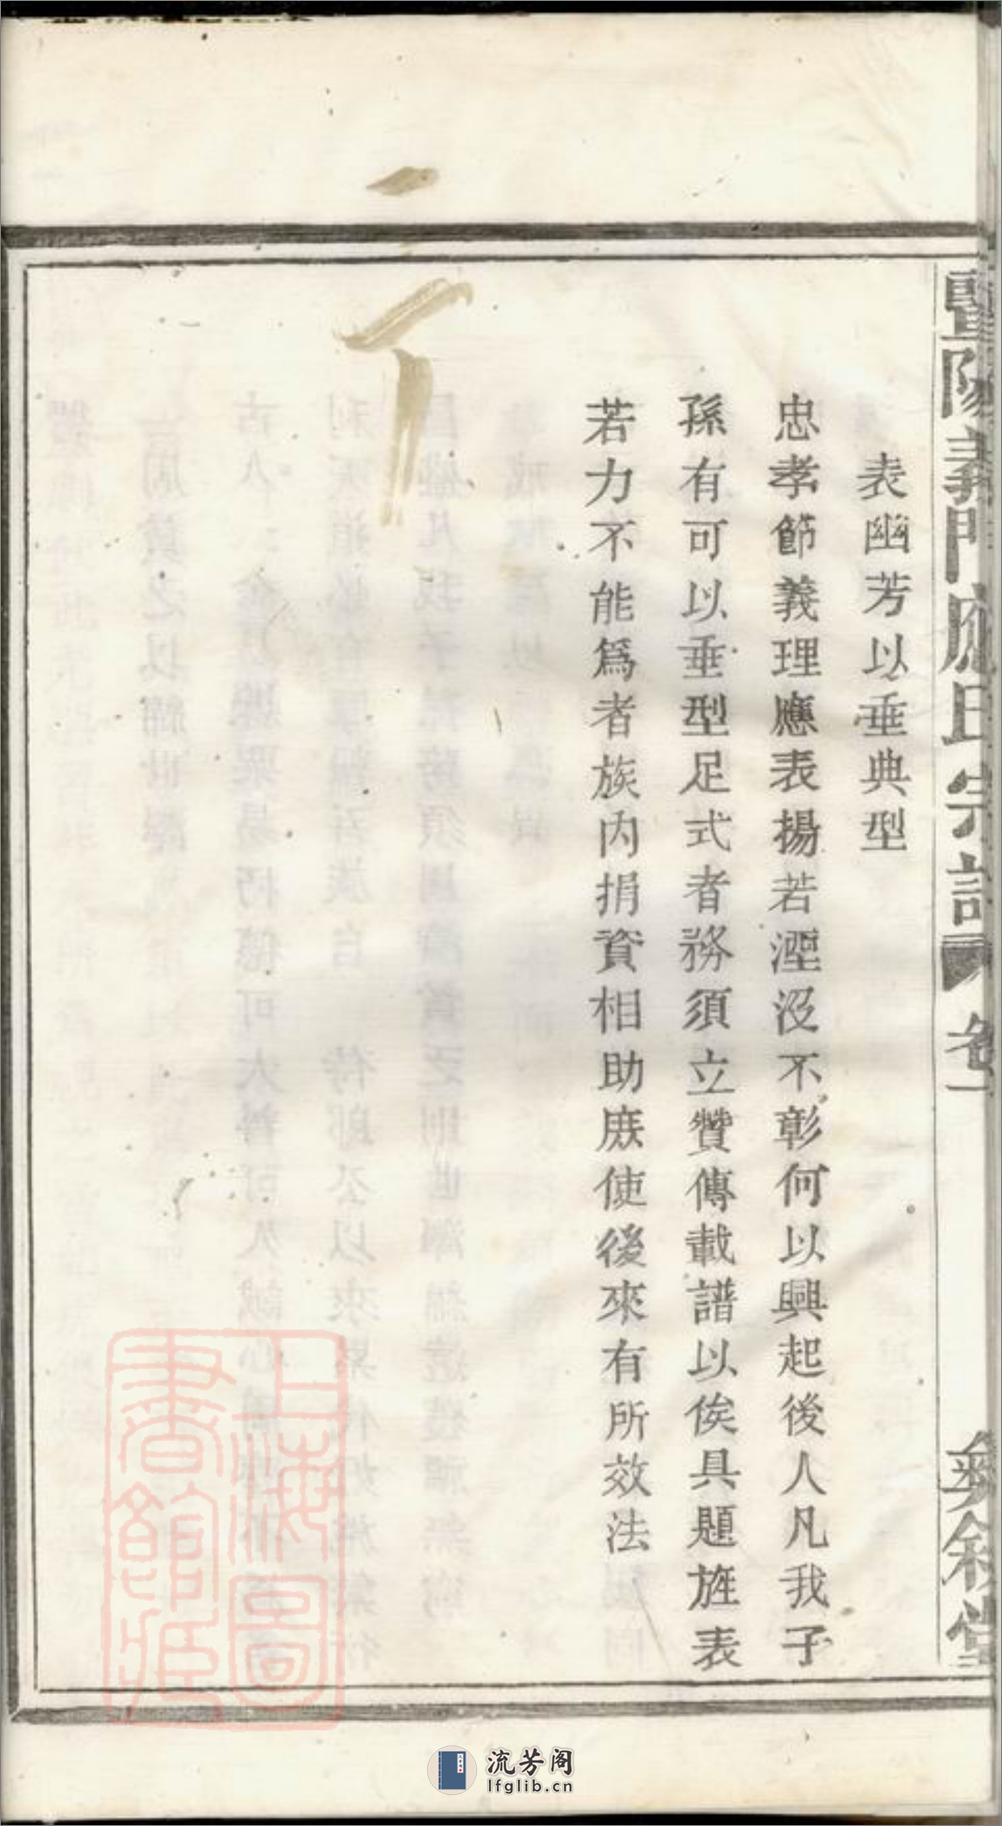 表幽芳以垂典型
忠孝節義理應表揚若湮没不彰何以興起後人凡我子
孫有可以垂型足式者務須立贊傳載譜以俟具題旌表
若力不能爲者族內捐資相助庶使後來有所效法
暨陽義門應氏宗譜
卷一
叙堂
上海圖
書館藏
流芳阁
lfglib.cn